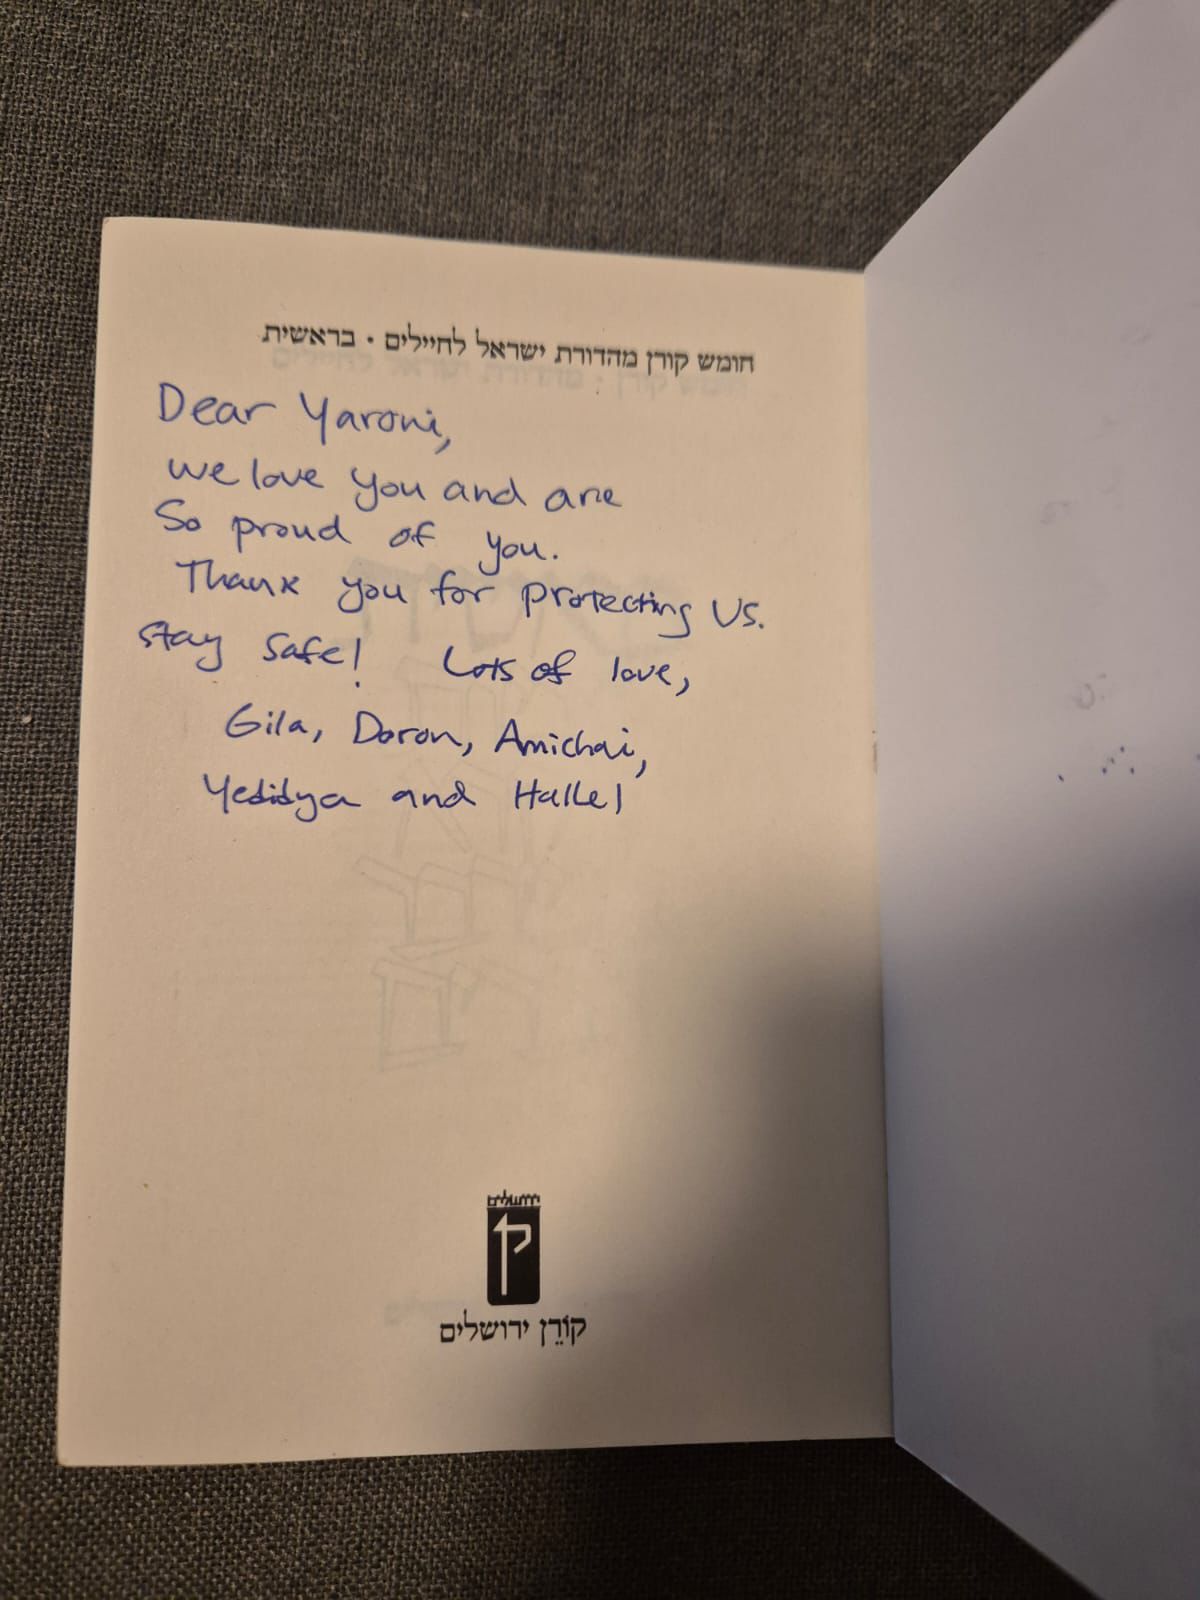 חומש קורן מהדורת ישראל לחיילים • בראשית
Dear Yaroni,
we love you and are
So proud of you.
Thank you for protecting us.
stay safe! Lots of love,
Gila, Doron, Amichai,
Yedidya and Hallel
ירושלים
ק
קוֹרֵן ירושלים